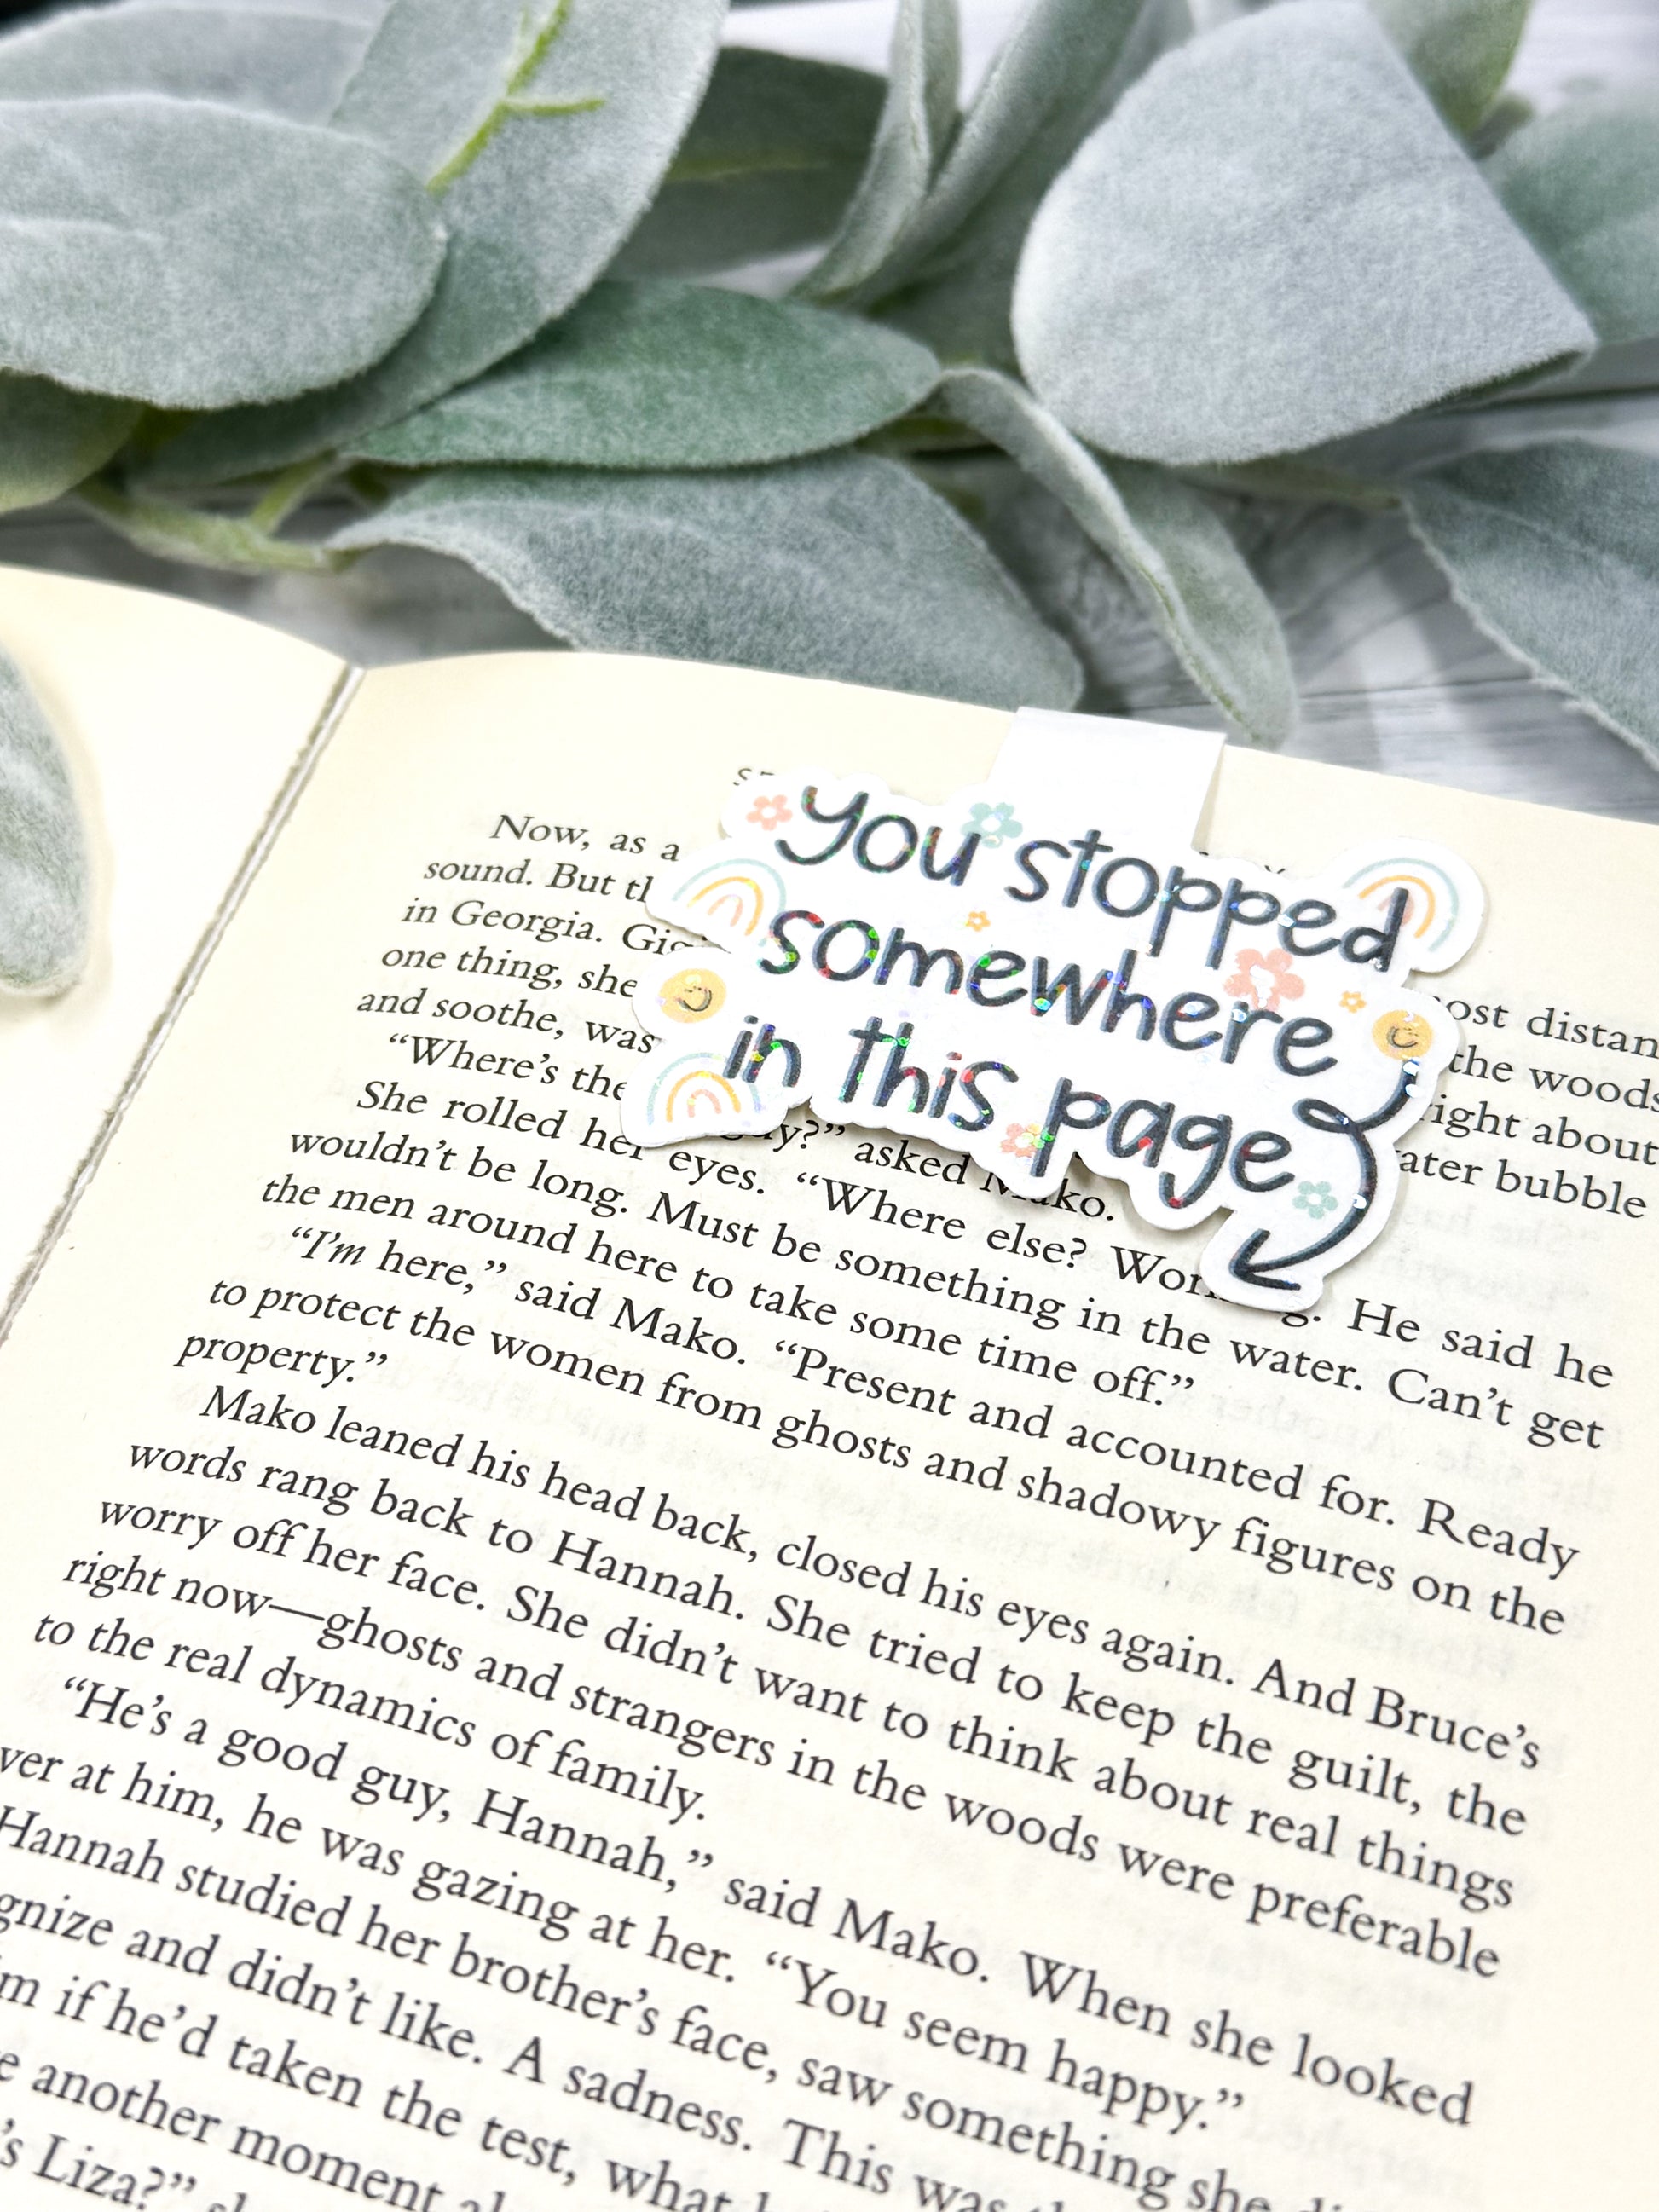 you stopped
somewhere
in this page
Now, as a
sound. But
in Georgia.
one thing, she
and soothe, was
distan
the woods
right about
bubble
“Where’s the guy?” asked Mako.
She rolled her eyes. “Where else? He said he
wouldn’t be long. Must be something in the water. Can’t get
the men around here to take some time off.”
“I’m here,” said Mako. “Present and accounted for. Ready
to protect the women from ghosts and shadowy figures on the
property.”
Mako leaned his head back, closed his eyes again. And Bruce’s
words rang back to Hannah. She tried to keep the guilt, the
worry off her face. She didn’t want to think about real things
right now—ghosts and strangers in the woods were preferable
to the real dynamics of family.
“He’s a good guy, Hannah,” said Mako. When she looked
ver at him, he was gazing at her. “You seem happy.”
Hannah studied her brother’s face, saw something she
gnize and didn’t like. A sadness. This was
m if he’d taken the test, what
e another moment
’s Liza?”